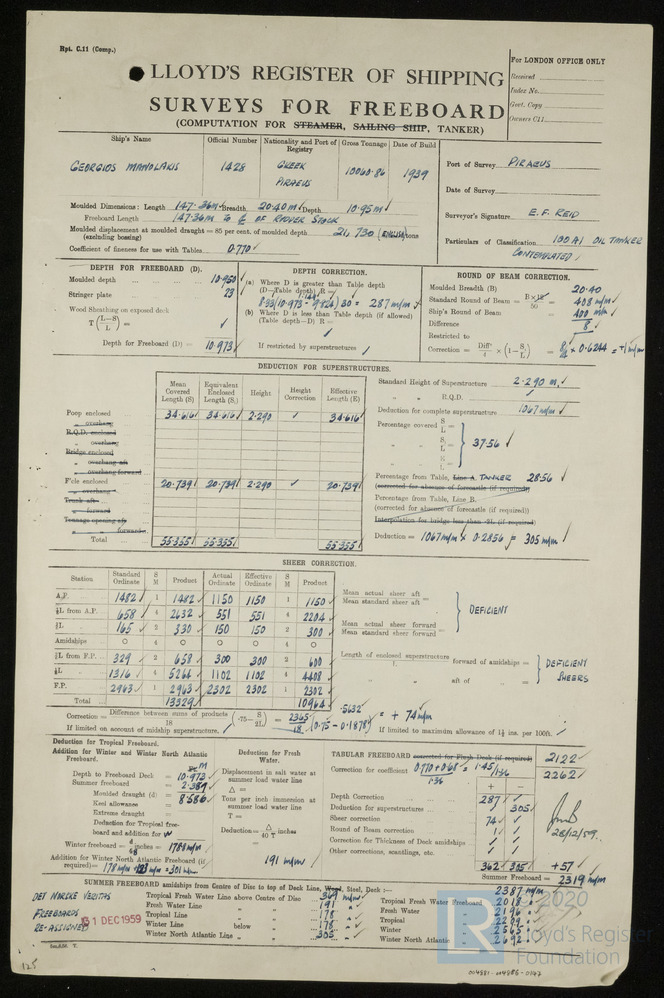 Rpt. C.11 (Comp.)
For LONDON OFFICE ONLY
Received
Index No.
Govt. Copy
Owners C11
LLOYD'S REGISTER OF SHIPPING
SURVEYS FOR FREEBOARD
(COMPUTATION FOR STEAMER, SAILING SHIP, TANKER)
Ship's Name Official Number Nationality and Port of Registry Gross Tonnage Date of Build
GEORGIOS MANOLAKIS 1428 GREEK PIRAEUS 10060.86 1939
Port of Survey PIRAEUS
Date of Survey
Surveyor's Signature E.F. REID
Particulars of Classification 100 A1 OIL TANKER
CONTEMPLATED
Moulded Dimensions: Length 147.36m Breadth 20.40m Depth 10.95m
Freeboard Length 147.36m TO ₵ OF RUDDER STOCK
Moulded displacement at moulded draught = 85 per cent. of moulded depth 21,730 (ENGLISH) tons
(excluding bossing)
Coefficient of fineness for use with Tables 0.770
DEPTH FOR FREEBOARD (D).
Moulded depth 10.950
Stringer plate 23
Wood Sheathing on exposed deck
T (L-S / L) =
Depth for Freeboard (D) = 10.973
DEPTH CORRECTION.
(a) Where D is greater than Table depth
(D-Table depth) R =
8.33 (10.973 - 9.824) 30 = 287 m/m
(b) Where D is less than Table depth (if allowed)
(Table depth-D) R =
If restricted by superstructures
ROUND OF BEAM CORRECTION.
Moulded Breadth (B) 20.40
Standard Round of Beam = B×12/50 = 408 m/m
Ship's Round of Beam = 400 m/m
Difference 8
Restricted to
Correction = Diff/4 × (1 - S₁/L) = 8/4 × 0.6244 = +1 m/m
DEDUCTION FOR SUPERSTRUCTURES.
Mean Covered Length (S) Equivalent Enclosed Length (S₁) Height Height Correction Effective Length (E)
Poop enclosed 34.616 34.616 2.290 34.616
" overhang
R.Q.D. enclosed
" overhang
Bridge enclosed
" overhang aft
" overhang forward
F'cle enclosed 20.739 20.739 2.290 20.739
" overhang
Trunk aft
" forward
Tonnage opening aft
" forward
Total 55.355 55.355 55.355
Standard Height of Superstructure 2.290 m.
" " R.Q.D.
Deduction for complete superstructure 1067 m/m
Percentage covered S/L =
" " S₁/L = 37.56
" " E/L =
Percentage from Table, Line A. TANKER 28.56
(corrected for absence of forecastle (if required))
Percentage from Table, Line B.
(corrected for absence of forecastle (if required))
Interpolation for bridge less than .2L (if required)
Deduction = 1067 m/m × 0.2856 = 305 m/m
SHEER CORRECTION.
Station Standard Ordinate S M Product Actual Ordinate Effective Ordinate S M Product
A.P. 1482 1 1482 1150 1150 1 1150
⅙L from A.P. 658 4 2632 551 551 4 2204
⅓L " 165 2 330 150 150 2 300
Amidships 0 4 0 0 0 4 0
⅓L from F.P. 329 2 658 300 300 2 600
⅙L " 1316 4 5264 1102 1102 4 4408
F.P. 2963 1 2963 2302 2302 1 2302
Total 13329 10964
Mean actual sheer aft =
Mean standard sheer aft
DEFICIENT
Mean actual sheer forward =
Mean standard sheer forward
Length of enclosed superstructure forward of amidships =
L
" " aft of " =
DEFICIENT SHEERS
Correction = Difference between sums of products / 18 (.75 - S/2L) = 2365/18 (0.75 - 0.1878) .5632 = + 74 m/m
If limited on account of midship superstructure.
If limited to maximum allowance of 1½ ins. per 100ft.
Deduction for Tropical Freeboard.
Addition for Winter and Winter North Atlantic Freeboard.
m
Depth to Freeboard Deck = 10.973
Summer freeboard = 2.387
Moulded draught (d) = 8.586
Keel allowance
Extreme draught =
Deduction for Tropical freeboard and addition for W
Winter freeboard = d/48 inches = 178 m/m
Addition for Winter North Atlantic Freeboard (if required) = 178 m/m + 123 m/m = 301 m/m
Deduction for Fresh Water.
Displacement in salt water at summer load water line
Δ =
Tons per inch immersion at summer load water line
T =
Deduction = Δ / 40 T inches
=
191 m/m
TABULAR FREEBOARD corrected for Flush Deck (if required) 2122
Correction for coefficient 0.770 + 0.68 / 1.36 = 1.45 / 1.36 2262
+ -
Depth Correction 287
Deduction for superstructures 305
Sheer correction 74
Round of Beam correction 1
Correction for Thickness of Deck amidships
Other corrections, scantlings, etc.
362 305 +57
28/12/59.
Summer Freeboard = 2319 m/m
SUMMER FREEBOARD amidships from Centre of Disc to top of Deck Line, Wood, Steel, Deck :— 2387 m/m
Tropical Fresh Water Line above Centre of Disc 369 m/m
Fresh Water Line " " 191
Tropical Line " " 178
Winter Line below " 178
Winter North Atlantic Line " " 305
Tropical Fresh Water Freeboard 2018
Fresh Water " 2196
Tropical " 2209
Winter " 2565
Winter North Atlantic " 2692
DET NORSKE VERITAS
FREEBOARDS
RE-ASSIGNED
31 DEC 1959
125
004981-004986-0147
© 2020
Lloyd's Register
Foundation